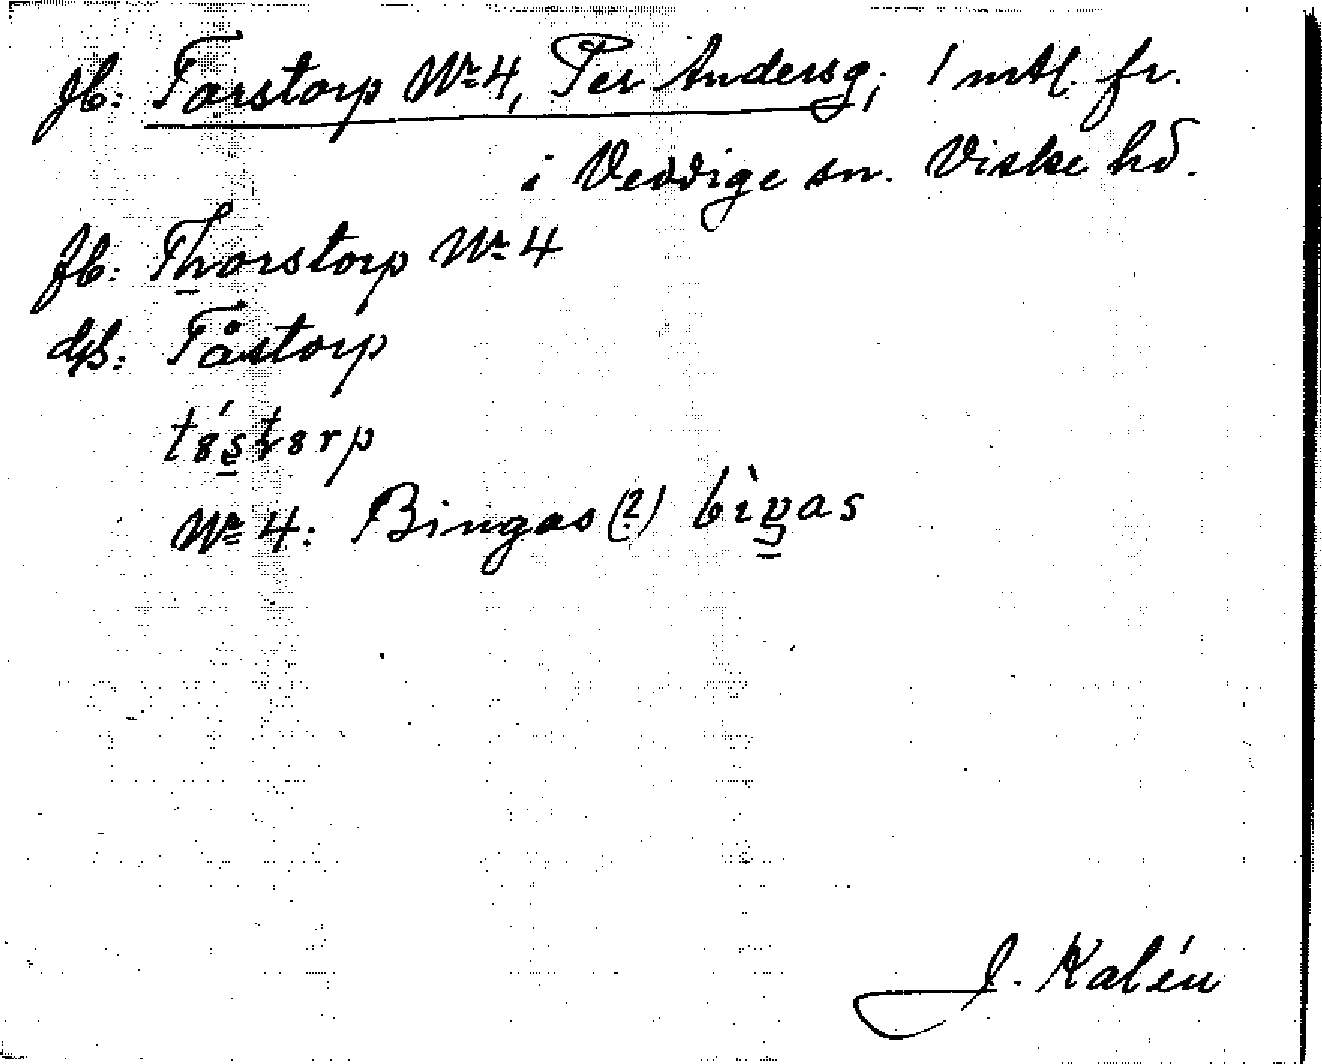 Jb: Torstorp No 4, Per Andersg; 1 mtl. fr.
i Veddige sn. Viske hd.
Jb: Thorstorp No 4
Tåstorp
No 4: Bingas (?)
J. Kalén